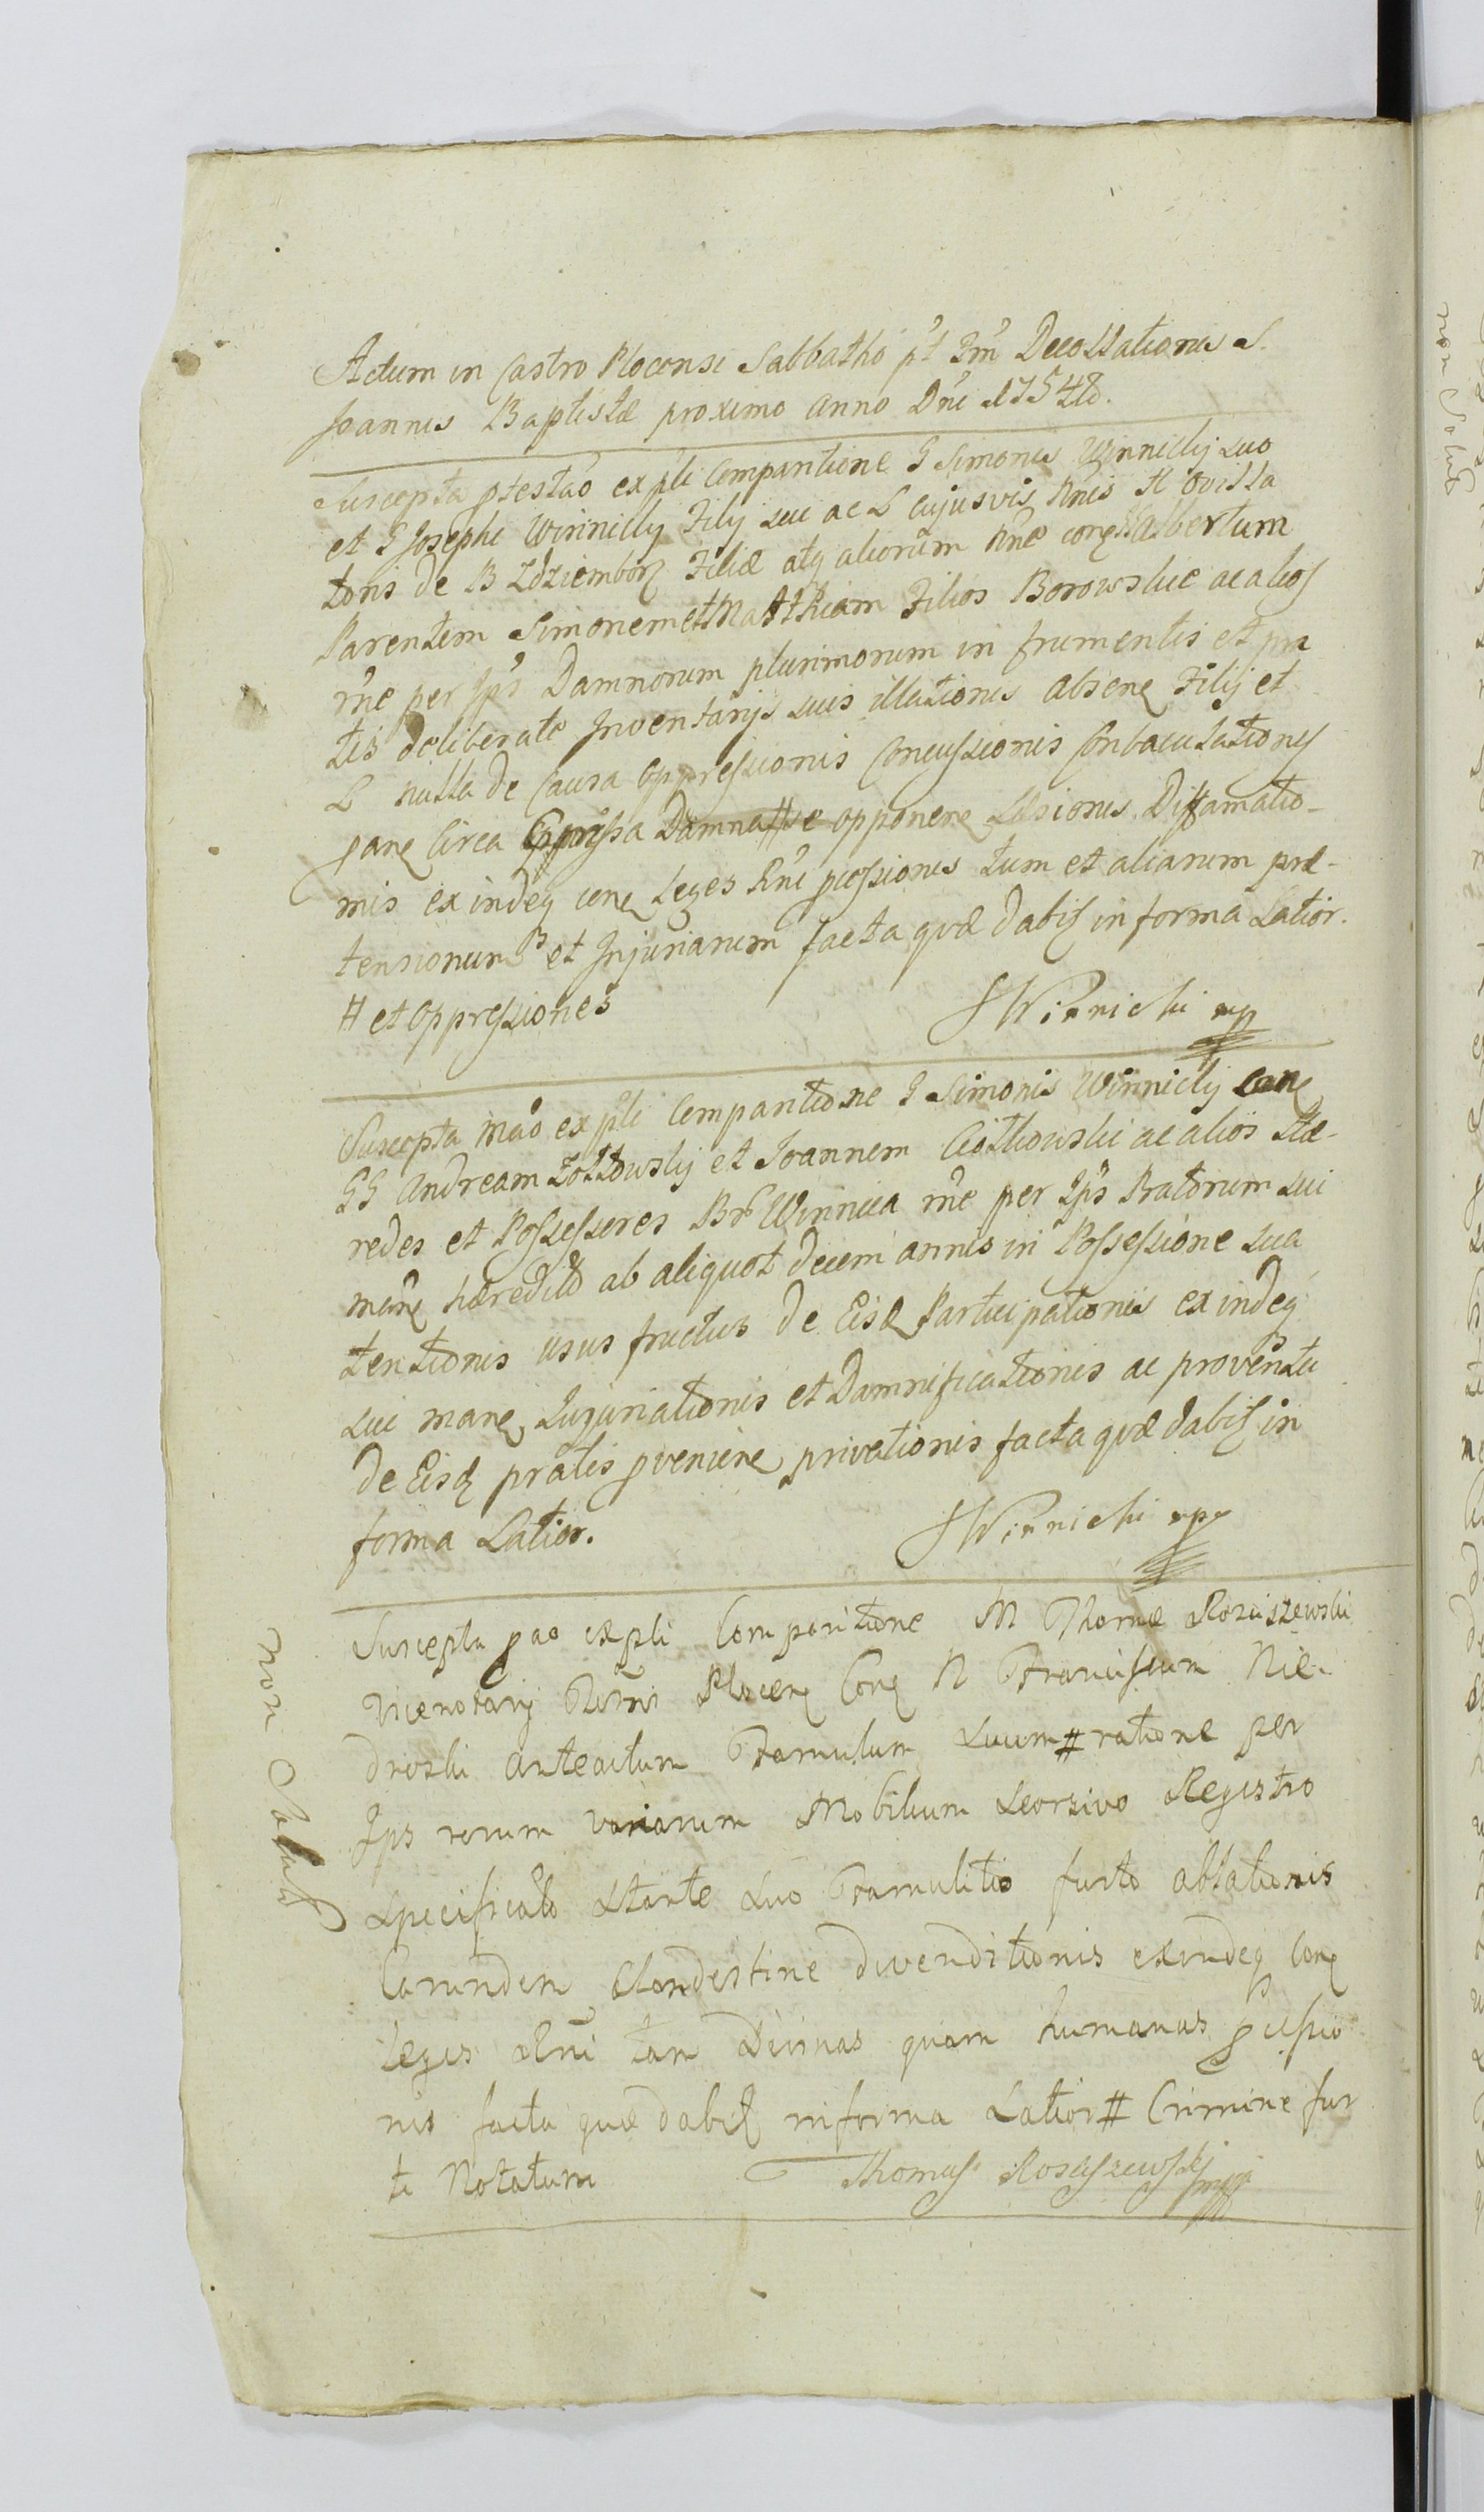 Actum in Castro Plocensi Sabbatho pt Fm Decollationis S.
Joannis Baptistæ proximo Anno Dni 1754to.
Suscepta ptestao ex pli Comparitione G Simonis Winnicky suo
et G Josephi Winnicky Filij sui ac L cujusvis Nnis H Ovilla
toris de B Zdziemborz Filiæ atq aliorum Nne conq Albertum
Parentem Simonem et Matthiam Filios Borowskie ac alios
rne per Ips Damnorum plurimorum in frumentis et pra
tis deliberate Inventarijs suis illationis absenq Filij et
L nulla de Causa oppressionis Concussionis Conbaculationis
panq Circa Damna # se opponenq Læsionis Diffamatio-
nis exindeq conq Leges Rni pcessionis tum et aliarum præ-
tensionum et Injuriarum facta quæ dabis in forma Latior.
# et Oppressiones
SWinnicki mp
Suscepta Mao ex pli Comparitione G Simonis Winnicky conq
GG Andream Zołtowsky et Joannem Ciołkowski ac alios Hæ-
redes et Possessores Br Winnica rne per Ips Pratorum sui
manq hæredito ab aliquot decem annis in Possessione sua
tentionis usus fructus de Eisq Participationis exindeq
sui manq Injuriationis et Damnificationis ac proventu
de Eisq pratis pvenienq privationis facta quæ dabis in
forma Latior.
SWinnicki mp
Suscepta pao ex pli Comparitione M Thomæ Rosciszewski
Vicenotarij Plocenq Conq N Franciscum Nie-
droski anteactum Famulum suum # ratione per
Ips rerum variarum Mobilium seorsivo Registro
specificato stante suo Famulitio furto ablationis
Earundem clandestine divenditionis exindeq conq
Leges Rni tam Divinas quam humanas pcessio
nis facta quæ dabis in forma Latior # Crimine fur
ti Notatum
Thomas Rosciszewski mp
non Solut
non Solut